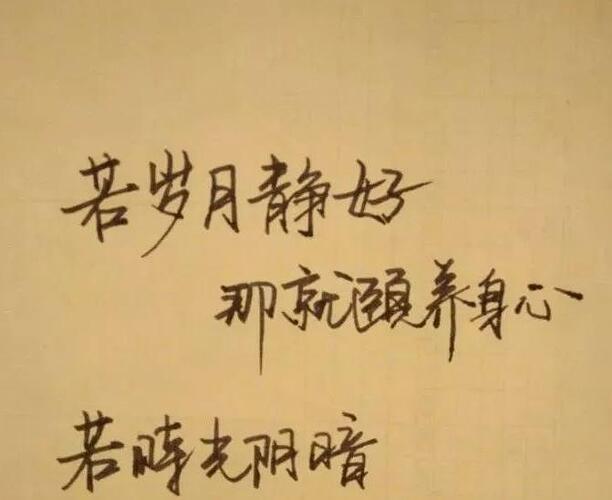 若岁月静好
那就颐养身心
若时光阴暗